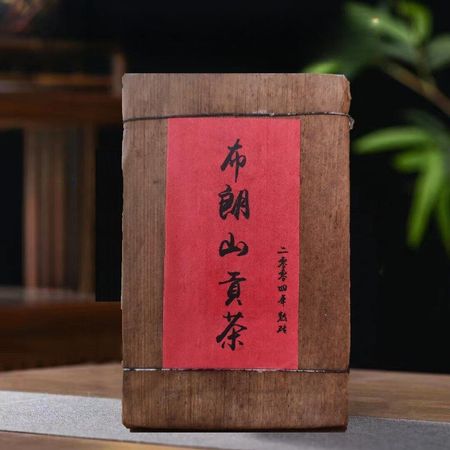 布朗山贡茶
二零零四年熟砖